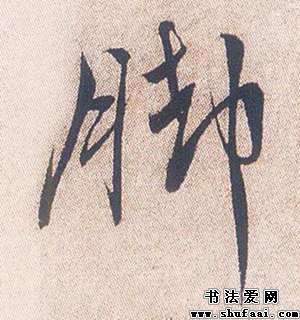 脚
书法爱网
www.shufaai.com